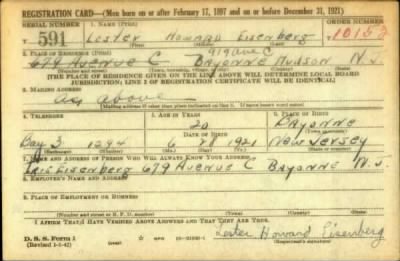 REGISTRATION CARD—(Men born on or after February 17, 1897 and on or before December 31, 1921)
SERIAL NUMBER 1. NAME (Print) ORDER NUMBER
591 Lester Howard Eisenberg 10153
(First) (Middle) (Last)
2. PLACE OF RESIDENCE (Print) 919 Ave C
679 Avenue C Bayonne Hudson N.J.
[THE PLACE OF RESIDENCE GIVEN ON THE LINE ABOVE WILL DETERMINE LOCAL BOARD
JURISDICTION; LINE 2 OF REGISTRATION CERTIFICATE WILL BE IDENTICAL]
3. MAILING ADDRESS
as above
[Mailing address if other than place indicated on line 2. If same insert word same]
4. TELEPHONE 5. AGE IN YEARS 6. PLACE OF BIRTH
20 Bayonne
DATE OF BIRTH
Bay 3 1294 6 28 1921 New Jersey
(Exchange) (Number) (Mo.) (Day) (Yr.) (State or country)
7. NAME AND ADDRESS OF PERSON WHO WILL ALWAYS KNOW YOUR ADDRESS
Eisenberg 679 Avenue C Bayonne N.J.
8. EMPLOYER'S NAME AND ADDRESS
9. PLACE OF EMPLOYMENT OR BUSINESS
(Number and street or R. F. D. number) (Town) (County) (State)
I AFFIRM THAT I HAVE VERIFIED ABOVE ANSWERS AND THAT THEY ARE TRUE.
D. S. S. Form 1
(Revised 1-1-42) GPO Lester Howard Eisenberg
(Registrant's signature)